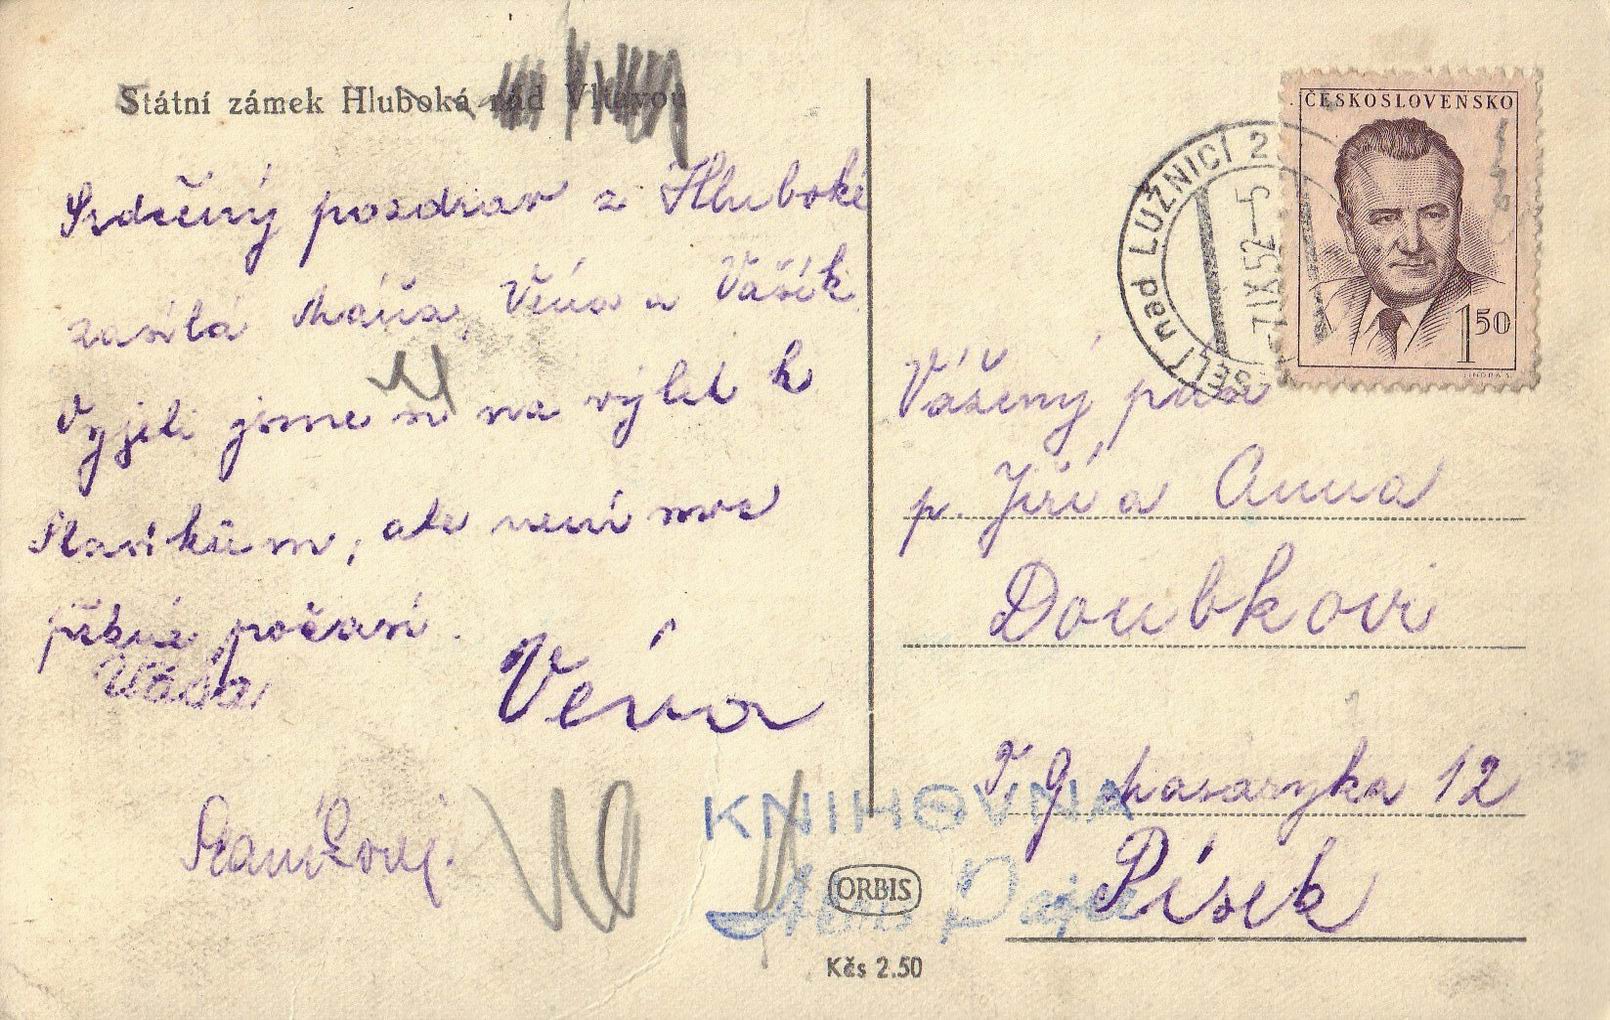 Státní zámek Hluboká nad Vltavou
Srdečný pozdrav z Hluboké
zasílá Máňa, Věna a Vašík
Vyjeli jsme si na výlet k
Slavíkům, ale není moc
pěkné počasí.
Váša
Věna
ČESKOSLOVENSKO
1 50
SELÍ nad LUŽNICÍ 2
-7.IX.52-5
Vážený pán
p. Jiří a Anna
Doubkovi
T. G. Masaryka 12
Písek
KNIHOVNA
ORBIS
Kčs 2.50